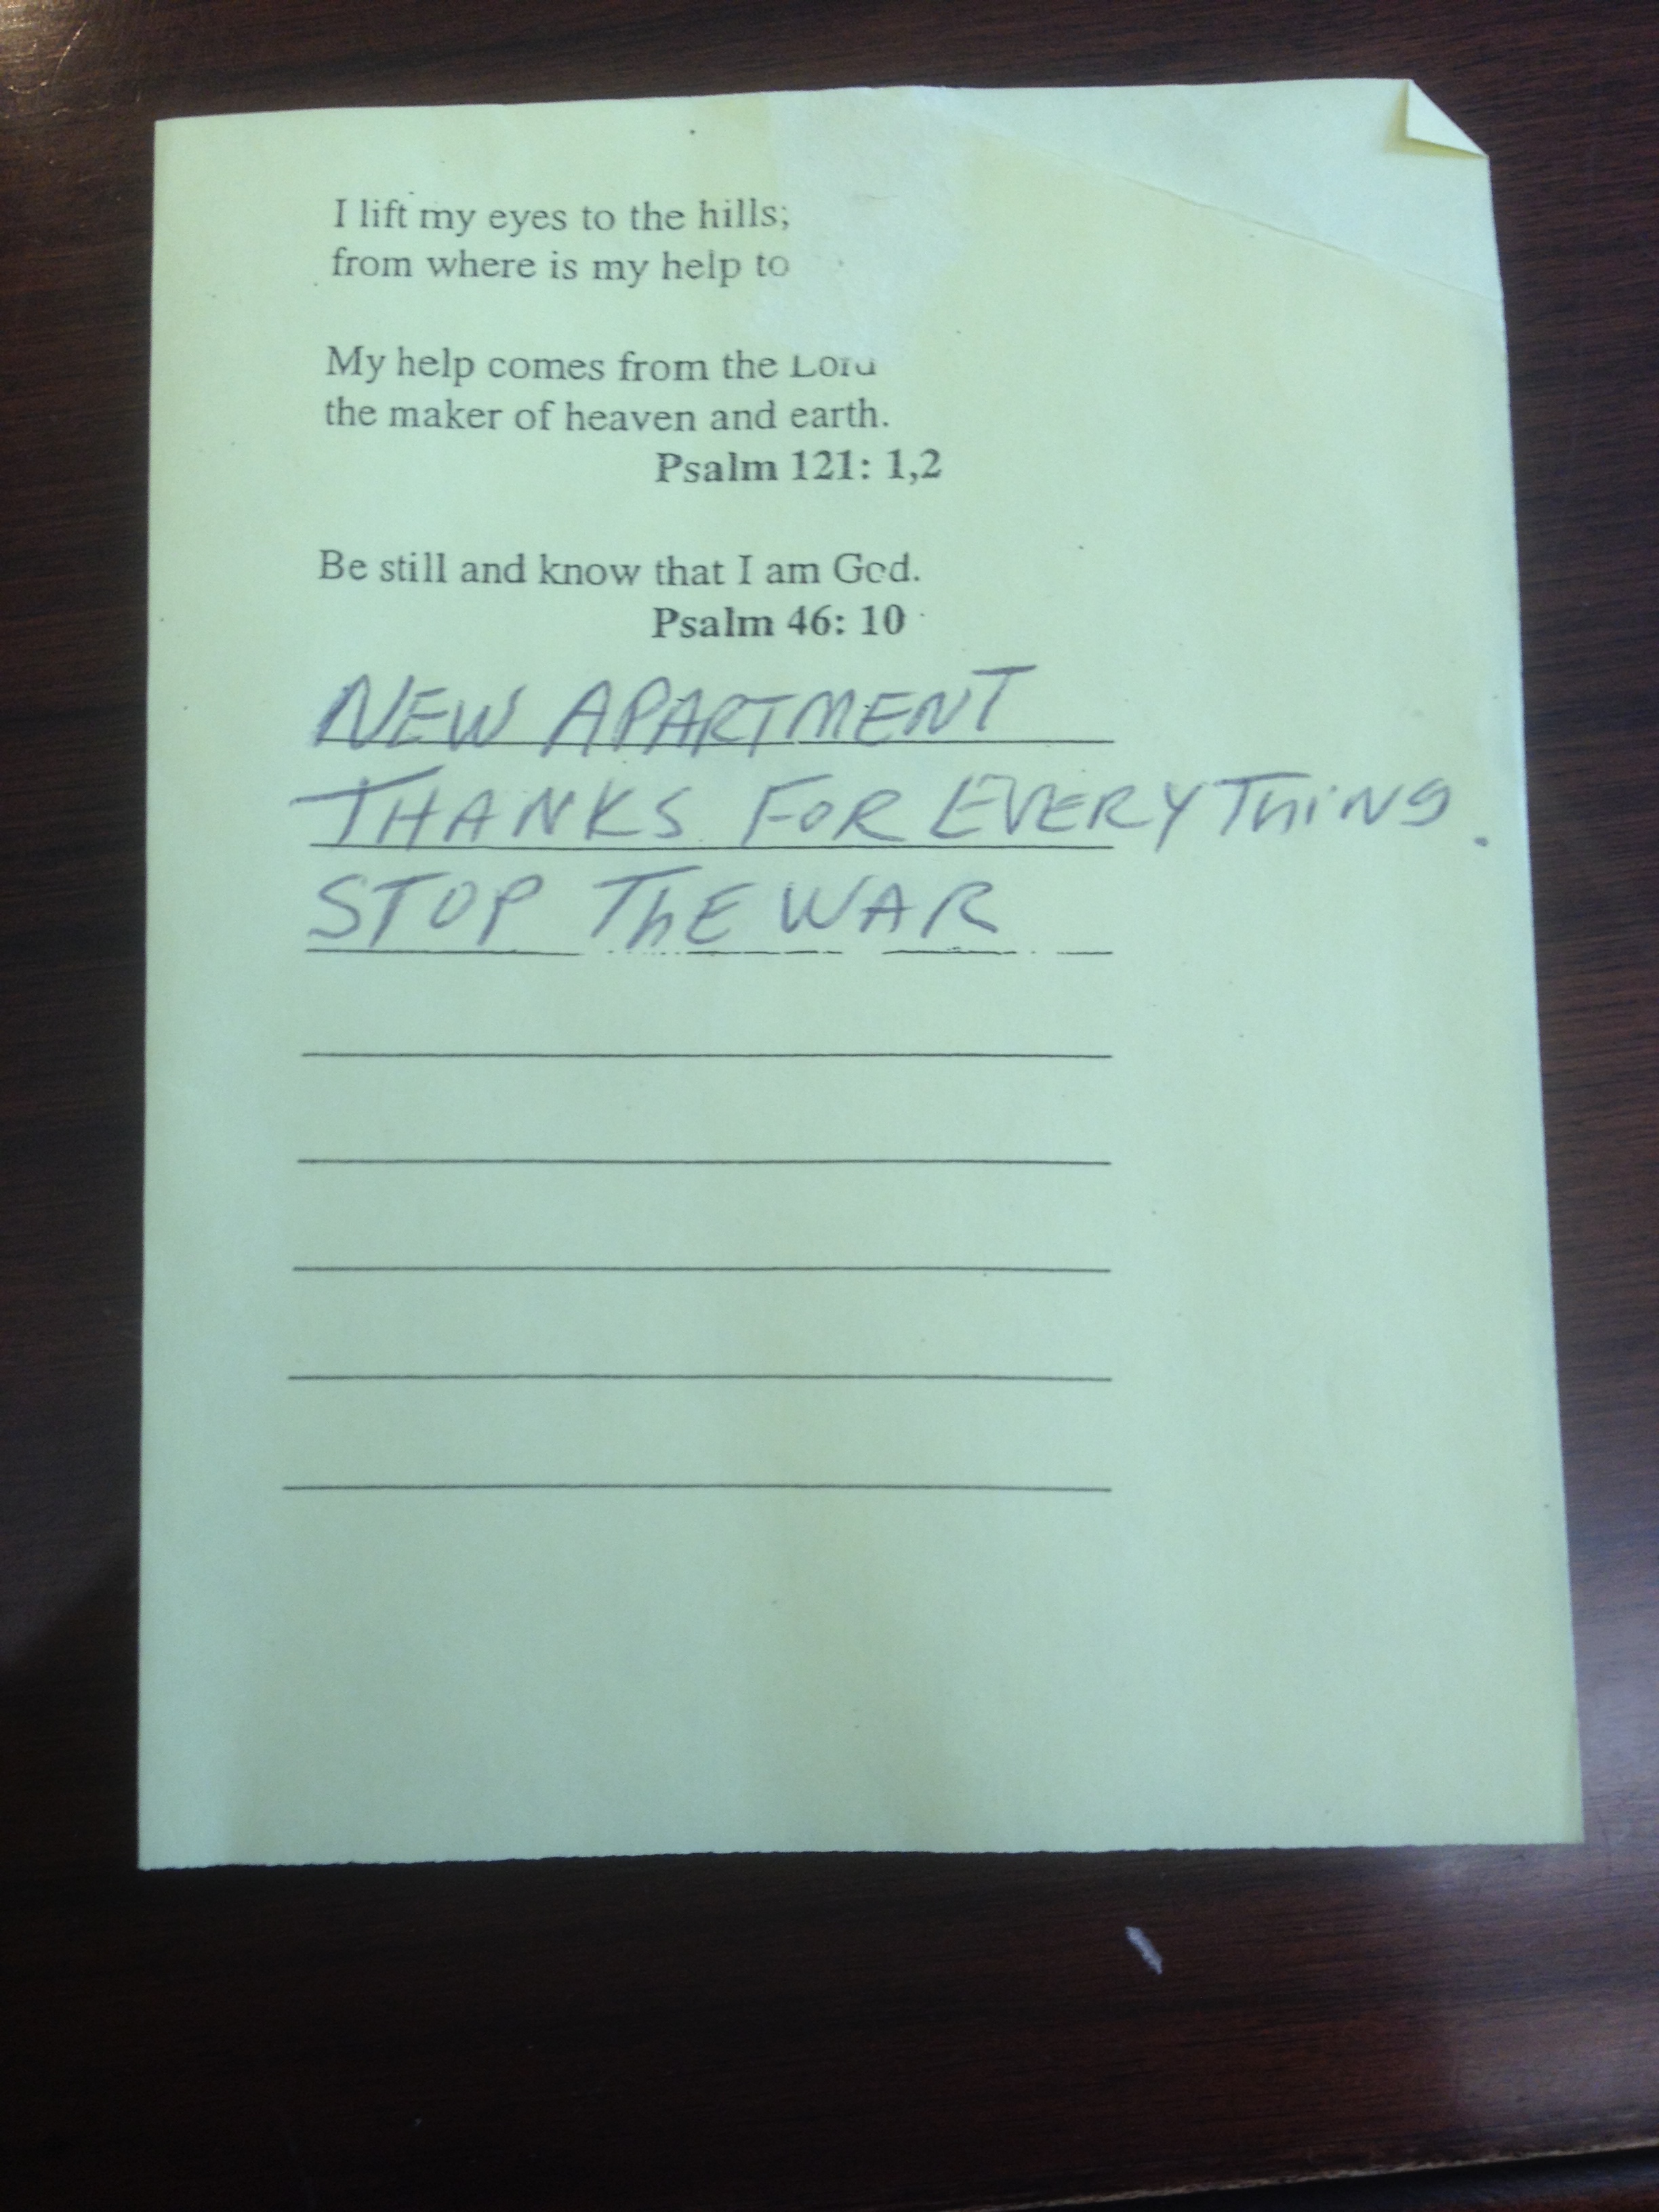 I lift my eyes to the hills;
from where is my help to
My help comes from the Lord
the maker of heaven and earth.
Psalm 121: 1,2
Be still and know that I am God.
Psalm 46: 10
NEW APARTMENT
THANKS FOR EVERYThiNg.
STOP ThE WAR